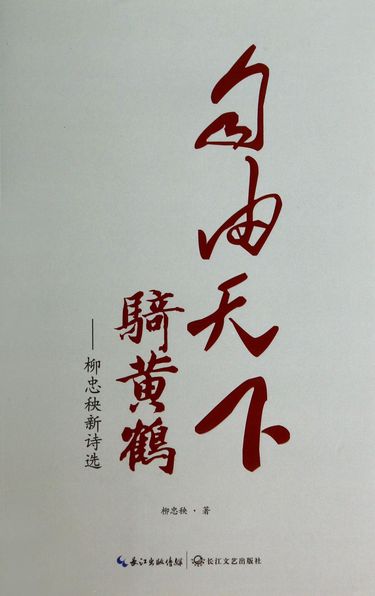 自由天下
騎黄鹤
——柳忠秧新诗选
柳忠秧·著
长江出版传媒
长江文艺出版社